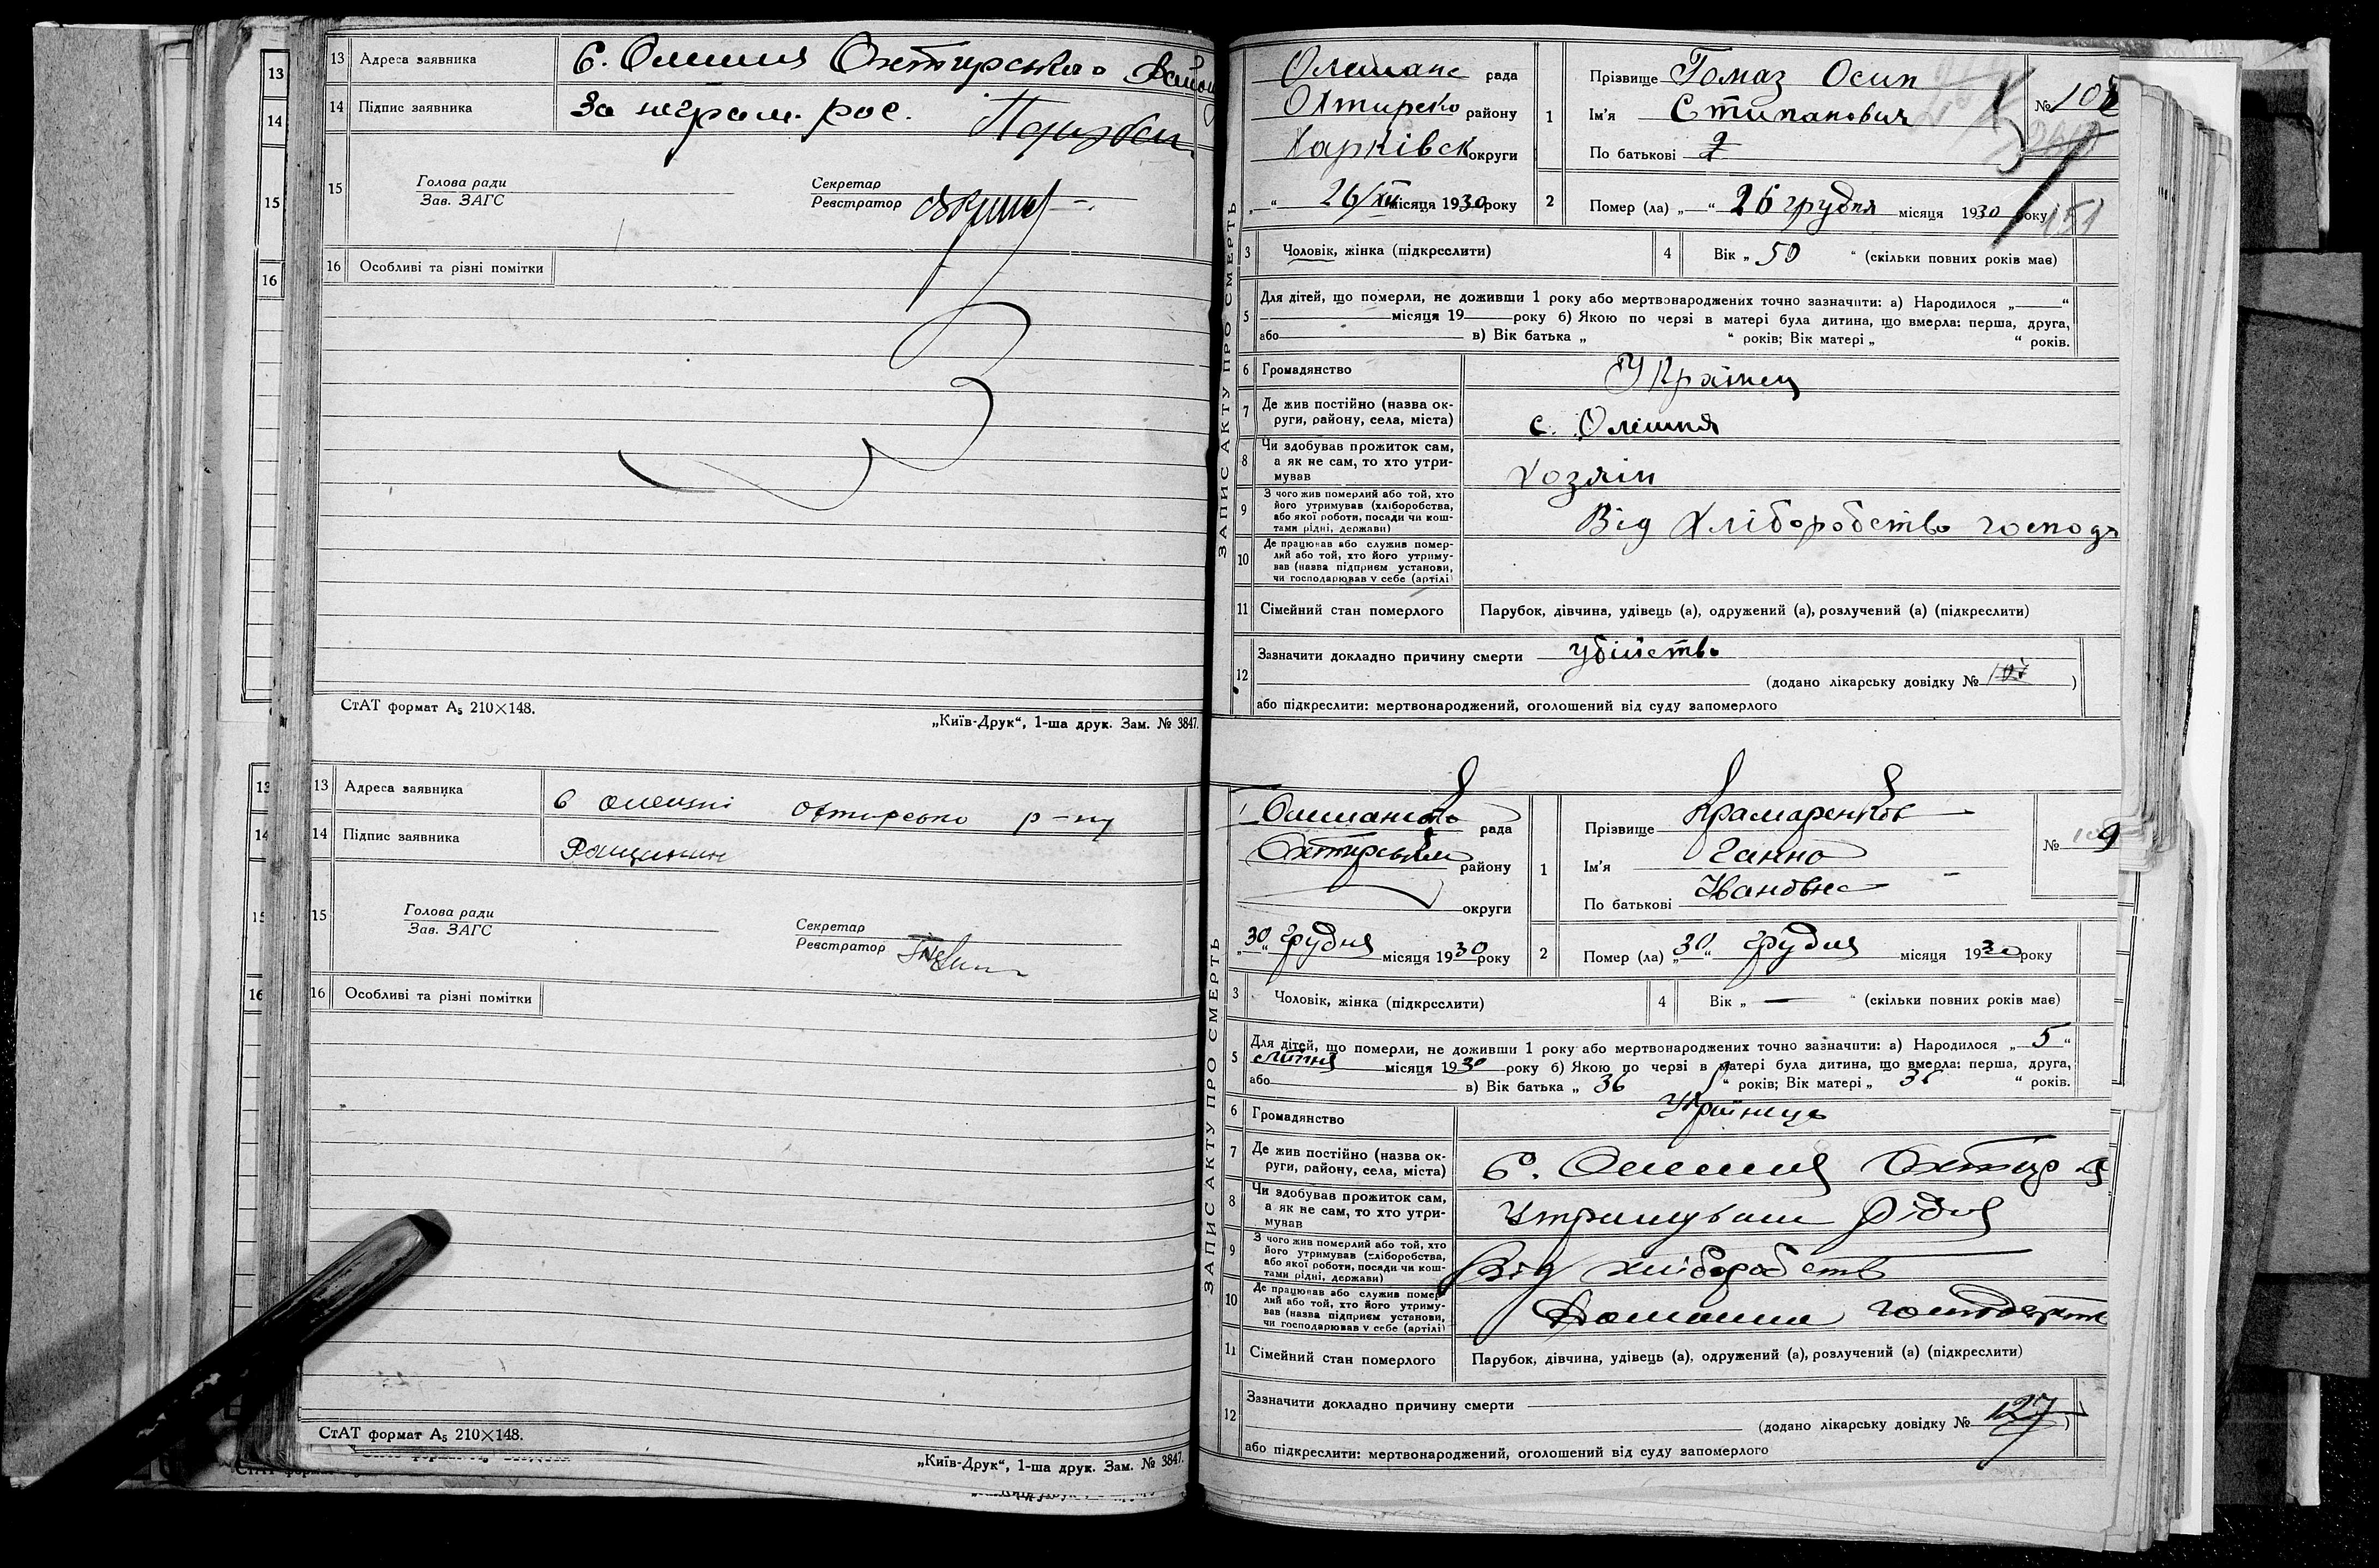 13
14
15
16
13 Адреса заявника С. Олешня Охтирсько Район
14 Підпис заявника За неграм. рос.
15 Голова ради
Зав. ЗАГС
Секретар
Реєстратор
16 Особливі та різні помітки
СтАТ формат А₅ 210×148.
„Київ-Друк“, 1-ша друк. Зам. № 3847.
13
14
15
16
13 Адреса заявника С Олешні Охтирсько р-ну
14 Підпис заявника
15 Голова ради
Зав. ЗАГС
Секретар
Реєстратор
16 Особливі та різні помітки
СтАТ формат А₅ 210×148.
„Київ-Друк“, 1-ша друк. Зам. № 3847.
ЗАПИС АКТУ ПРО СМЕРТЬ
Олешанс рада
Охтирсько району
Харківськ округи
„ “ 26/XII місяця 1930 року
1 Прізвище Гомаз Осип
Ім'я Стипанович
По батькові
№ 108
2 Помер (ла) „ “ 26 грудня місяця 1930 року
151
3 Чоловік, жінка (підкреслити)
4 Вік „ 50 “ (скільки повних років має)
5 Для дітей, що померли, не доживши 1 року або мертвонароджених точно зазначити: а) Народилося „ “
місяця 19 року б) Якою по черзі в матері була дитина, що вмерла: перша, друга,
або в) Вік батька „ “ років; Вік матері „ “ років.
6 Громадянство Українец
7 Де жив постійно (назва ок-
руги, району, села, міста) с. Олешня
8 Чи здобував прожиток сам,
а як не сам, то хто утри-
мував Хозяін
9 З чого жив померлий або той, хто
його утримував (хліборобства,
або якої роботи, посади чи кош-
тами рідні, держави) Від Хліборобство господ
10 Де працював або служив помер-
лий або той, хто його утриму-
вав (назва підприєм установи,
чи господарював у себе (артілі)
11 Сімейний стан померлого Парубок, дівчина, удівець (а), одружений (а), розлучений (а) (підкреслити)
12 Зазначити докладно причину смерти убійство
(додано лікарську довідку № 107 )
або підкреслити: мертвонароджений, оголошений від суду запомерлого
ЗАПИС АКТУ ПРО СМЕРТЬ
Олешансько рада
Охтирський району
округи
„30“ грудня місяця 1930 року
1 Прізвище Крамаренков
Ім'я Ганно
По батькові Івановна
№ 109
2 Помер (ла) „30“ грудня місяця 1930 року
3 Чоловік, жінка (підкреслити)
4 Вік „ — “ (скільки повних років має)
5 Для дітей, що померли, не доживши 1 року або мертвонароджених точно зазначити: а) Народилося „ 5 “
липня місяця 1930 року б) Якою по черзі в матері була дитина, що вмерла: перша, друга,
або в) Вік батька „ 36 “ років; Вік матері „ 36 “ років.
6 Громадянство Українець
7 Де жив постійно (назва ок-
руги, району, села, міста) С. Олешня Охтир
8 Чи здобував прожиток сам,
а як не сам, то хто утри-
мував Утримували рідня
9 З чого жив померлий або той, хто
його утримував (хліборобства,
або якої роботи, посади чи кош-
тами рідні, держави) Від хліборобств
10 Де працював або служив помер-
лий або той, хто його утриму-
вав (назва підприєм установи,
чи господарював у себе (артілі) Домашне господарств
11 Сімейний стан померлого Парубок, дівчина, удівець (а), одружений (а), розлучений (а) (підкреслити)
12 Зазначити докладно причину смерти
(додано лікарську довідку № 127 )
або підкреслити: мертвонароджений, оголошений від суду запомерлого